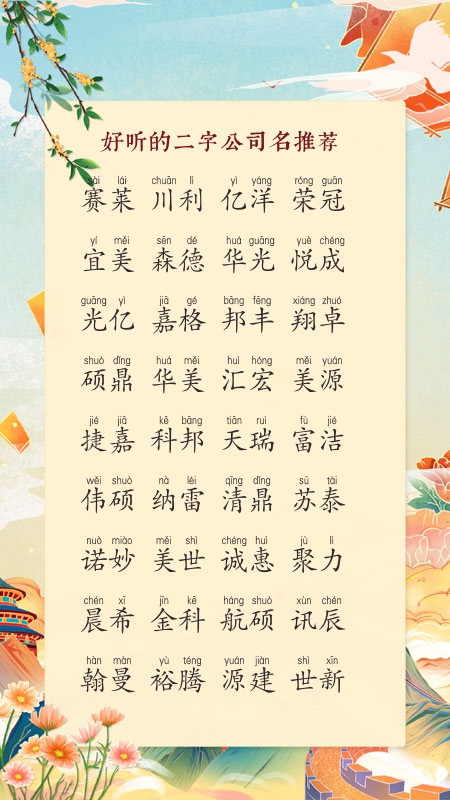 好听的二字公司名推荐
sài lái chuān lì yì yáng róng guān
赛莱 川利 亿洋 荣冠
yí měi sēn dé huá guāng yuè chéng
宜美 森德 华光 悦成
guāng yì jiā gé bāng fēng xiáng zhuó
光亿 嘉格 邦丰 翔卓
shuò dǐng huá měi huì hóng měi yuán
硕鼎 华美 汇宏 美源
jié jiā kē bāng tiān ruì fù jié
捷嘉 科邦 天瑞 富洁
wěi shuò nà léi qīng dǐng sū tài
伟硕 纳雷 清鼎 苏泰
nuò miào měi shì chéng huì jù lì
诺妙 美世 诚惠 聚力
chén xī jīn kē háng shuò xùn chén
晨希 金科 航硕 讯辰
hàn màn yù téng yuán jiàn shì xīn
翰曼 裕腾 源建 世新